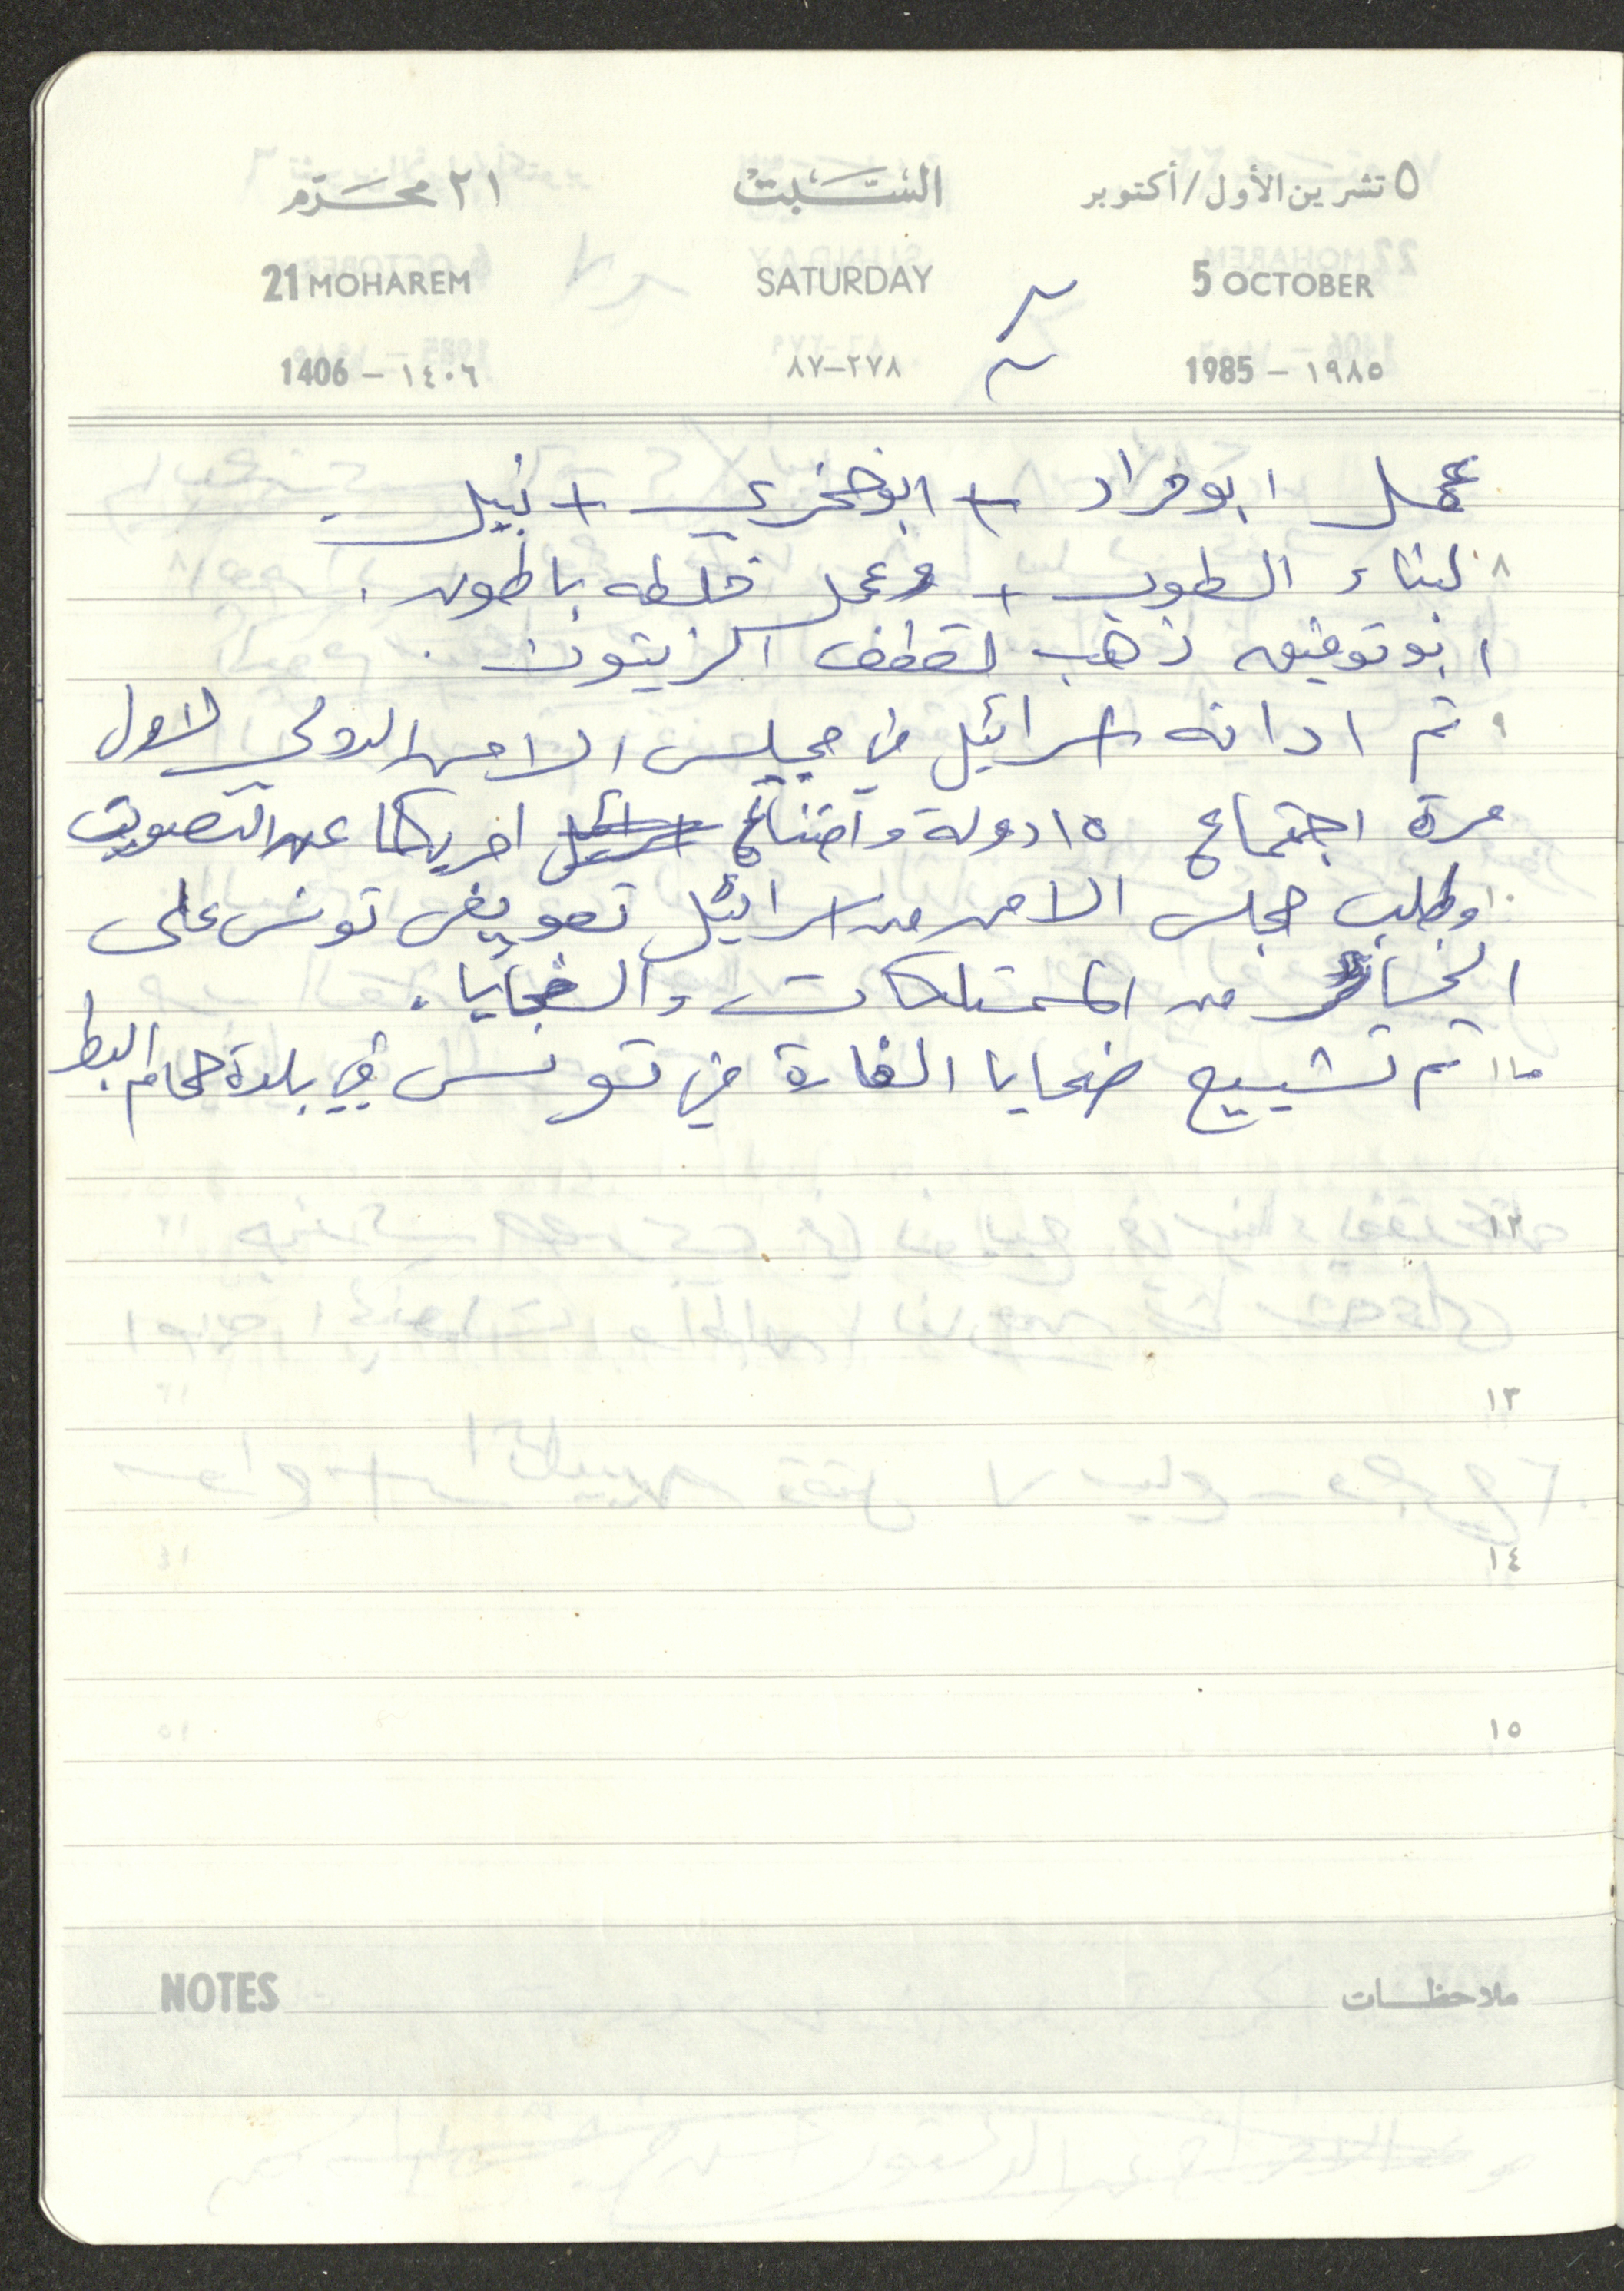 ٥ تشرين الأول/أكتوبر السَّبت ٢١ محرّم
5 OCTOBER SATURDAY 21 MOHAREM
1985 – ١٩٨٥ ٢٧٨–٨٧ 1406 – ١٤٠٦
عمل ابو فراد + ابو فخري + نبيل
٨ لبناء الطوب + وعمل خلطه باطون.
ابو توفيق ذهب لقطف الزيتون.
٩ تم ادانه اسرائيل في مجلس الامن الدولي لاول
مرة اجتماع ١٥ دولة وامتناع اسرائيل امريكا عن التصويت
١٠ وطلب مجلس الامن من اسرائيل تعويض تونس على
الخسائر من الممتلكات والضحايا.
١١ تم تشييع ضحايا الغارة في تونس في بلدة حمام البط
١٢
١٣
١٤
١٥
ملاحظات NOTES